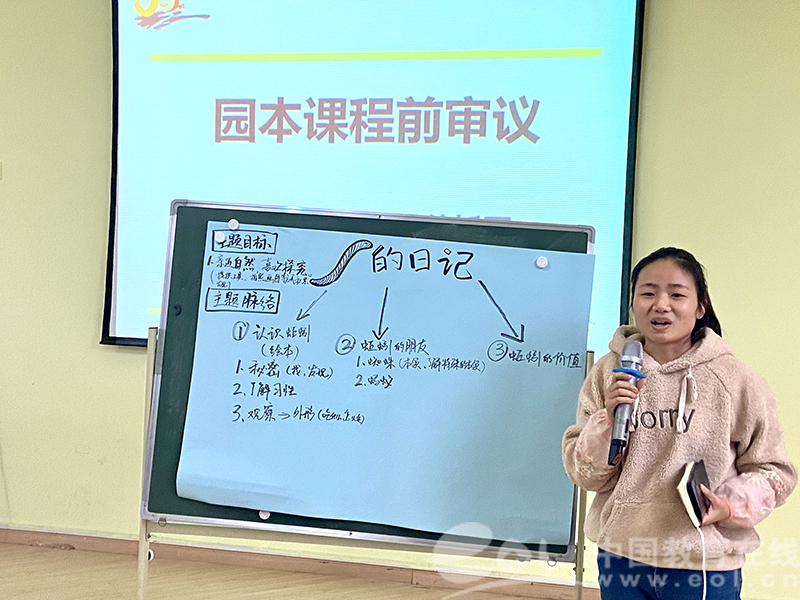 园本课程前审议
主题目标
的日记
1. 亲近自然 喜欢探索。
主题脉络
① 认识蚯蚓
(绘本)
1. 秘密(找、发现)
2. 了解习性
3. 观察→外形
② 蚯蚓的朋友
1. 蜘蛛
2. 蚂蚁
③ 蚯蚓的价值
worry
eol 中国教育在线
www.eol.cn